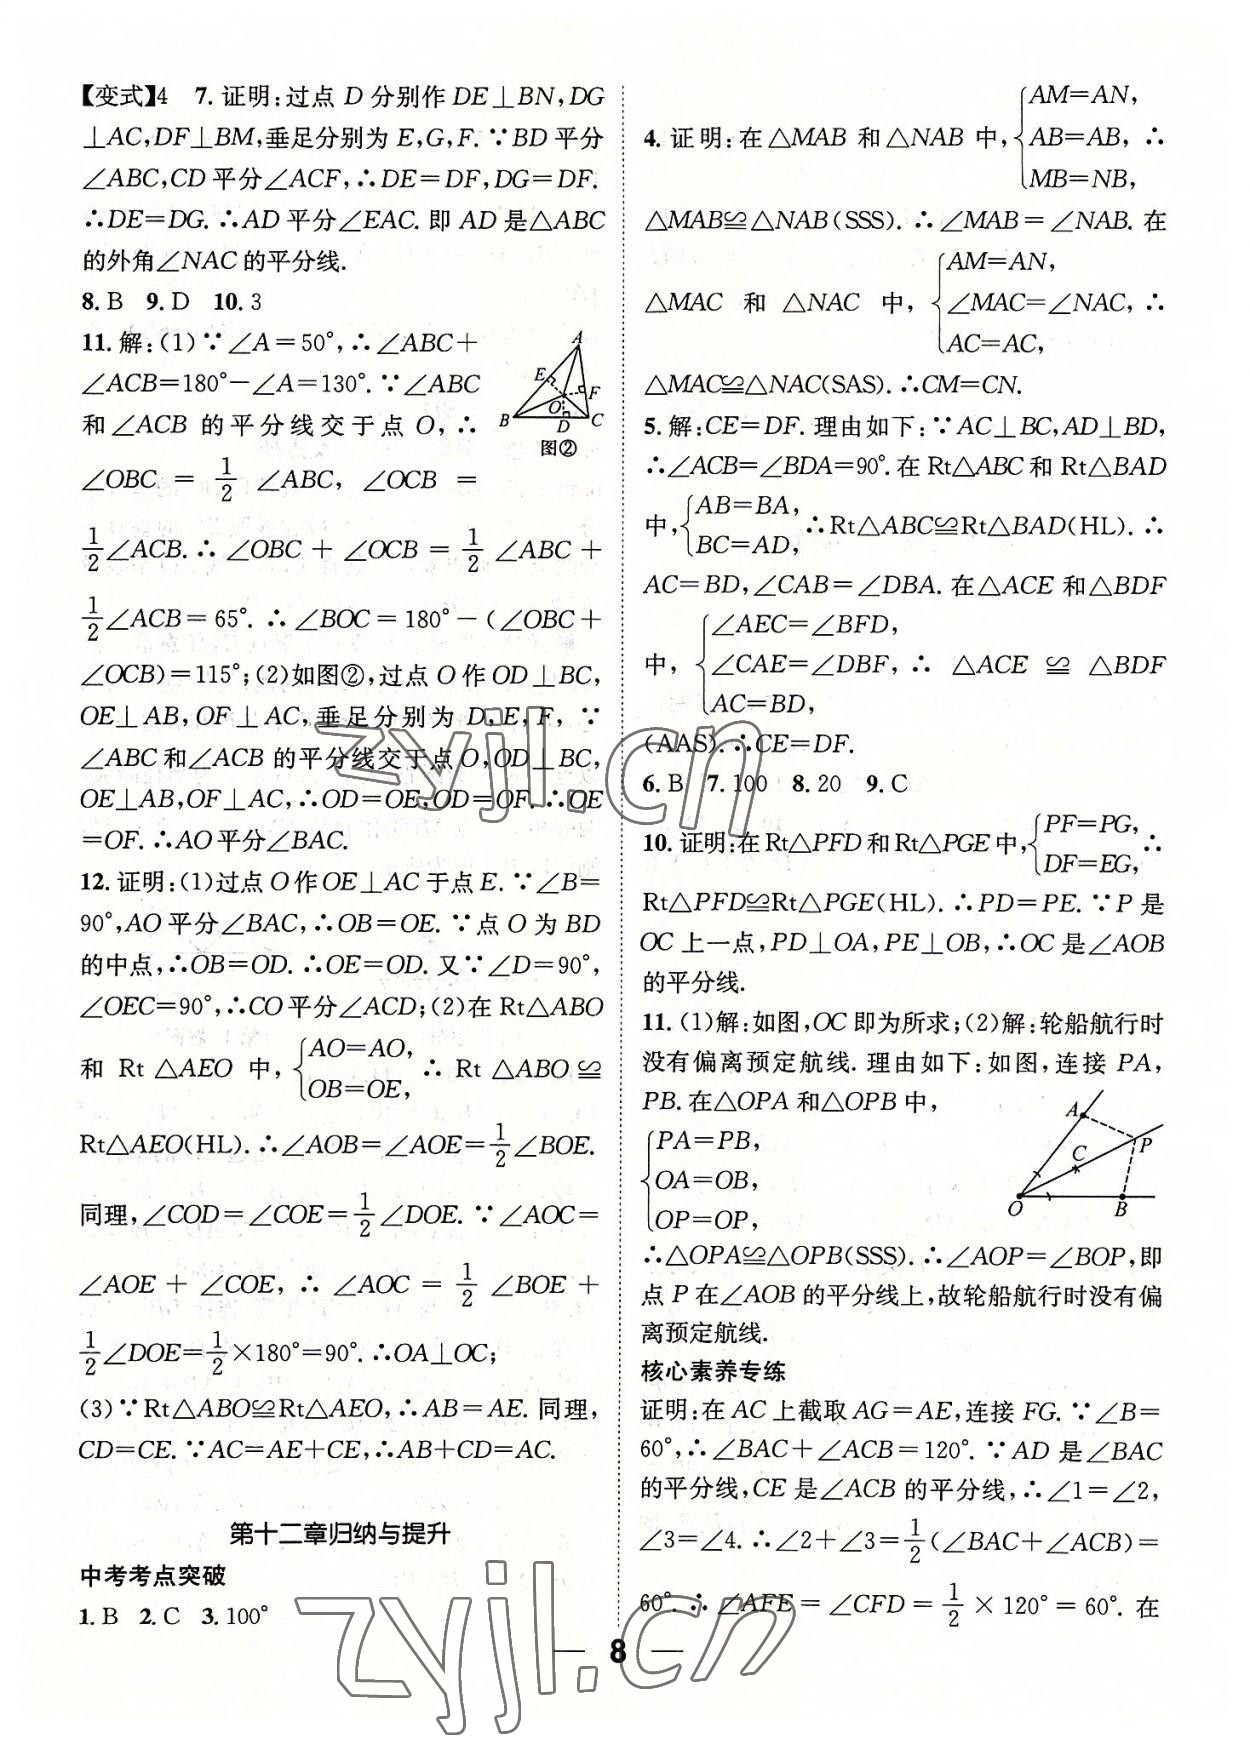 【变式】4 7. 证明:过点 D 分别作 DE⊥BN,DG
⊥AC,DF⊥BM,垂足分别为 E,G,F. ∵BD 平分
∠ABC,CD 平分∠ACF,∴DE=DF,DG=DF.
∴DE=DG. ∴AD 平分∠EAC. 即 AD 是△ABC
的外角∠NAC 的平分线.
8. B 9. D 10. 3
11. 解:(1)∵∠A=50°,∴∠ABC+
∠ACB=180°-∠A=130°. ∵∠ABC
和∠ACB 的平分线交于点 O,∴
∠OBC = 1/2 ∠ABC, ∠OCB =
1/2∠ACB. ∴∠OBC+∠OCB=1/2∠ABC+
1/2∠ACB=65°. ∴∠BOC=180°-(∠OBC+
∠OCB)=115°;(2)如图②,过点 O 作 OD⊥BC,
OE⊥AB,OF⊥AC,垂足分别为 D,E,F, ∵
∠ABC 和∠ACB 的平分线交于点 O,OD⊥BC,
OE⊥AB,OF⊥AC,∴OD=OE,OD=OF. ∴OE
=OF. ∴AO 平分∠BAC.
A
E
F
O
B
D
C
图②
12. 证明:(1)过点 O 作 OE⊥AC 于点 E. ∵∠B=
90°,AO 平分∠BAC,∴OB=OE. ∵点 O 为 BD
的中点,∴OB=OD. ∴OE=OD. 又∵∠D=90°,
∠OEC=90°,∴CO 平分∠ACD;(2)在 Rt△ABO
和 Rt△AEO 中,{AO=AO, OB=OE, ∴Rt△ABO≌
Rt△AEO(HL). ∴∠AOB=∠AOE=1/2∠BOE.
同理,∠COD=∠COE=1/2∠DOE. ∵∠AOC=
∠AOE+∠COE,∴∠AOC=1/2∠BOE+
1/2∠DOE=1/2×180°=90°. ∴OA⊥OC;
(3)∵Rt△ABO≌Rt△AEO,∴AB=AE. 同理,
CD=CE. ∵AC=AE+CE,∴AB+CD=AC.
第十二章归纳与提升
中考考点突破
1. B 2. C 3. 100°
4. 证明:在△MAB 和△NAB 中,{AM=AN, AB=AB, MB=NB, ∴
△MAB≌△NAB(SSS). ∴∠MAB=∠NAB. 在
△MAC 和 △NAC 中,{AM=AN, ∠MAC=∠NAC, AC=AC, ∴
△MAC≌△NAC(SAS). ∴CM=CN.
5. 解:CE=DF. 理由如下:∵AC⊥BC,AD⊥BD,
∴∠ACB=∠BDA=90°. 在 Rt△ABC 和 Rt△BAD
中,{AB=BA, BC=AD, ∴Rt△ABC≌Rt△BAD(HL). ∴
AC=BD,∠CAB=∠DBA. 在△ACE 和△BDF
中,{∠AEC=∠BFD, ∠CAE=∠DBF, AC=BD, ∴ △ACE ≌ △BDF
(AAS). ∴CE=DF.
6. B 7. 100 8. 20 9. C
10. 证明:在 Rt△PFD 和 Rt△PGE 中,{PF=PG, DF=EG, ∴
Rt△PFD≌Rt△PGE(HL). ∴PD=PE. ∵P 是
OC 上一点,PD⊥OA,PE⊥OB,∴OC 是∠AOB
的平分线.
11. (1)解:如图,OC 即为所求;(2)解:轮船航行时
没有偏离预定航线. 理由如下:如图,连接 PA,
PB. 在△OPA 和△OPB 中,
{PA=PB,
OA=OB,
OP=OP,
A
P
C
O
B
∴△OPA≌△OPB(SSS). ∴∠AOP=∠BOP,即
点 P 在∠AOB 的平分线上,故轮船航行时没有偏
离预定航线.
核心素养专练
证明:在 AC 上截取 AG=AE,连接 FG. ∵∠B=
60°,∴∠BAC+∠ACB=120°. ∵AD 是∠BAC
的平分线,CE 是∠ACB 的平分线,∴∠1=∠2,
∠3=∠4. ∴∠2+∠3=1/2(∠BAC+∠ACB)=
60°. ∴∠AFE=∠CFD=1/2×120°=60°. 在
8
zyjl.cn
zyjl.cn